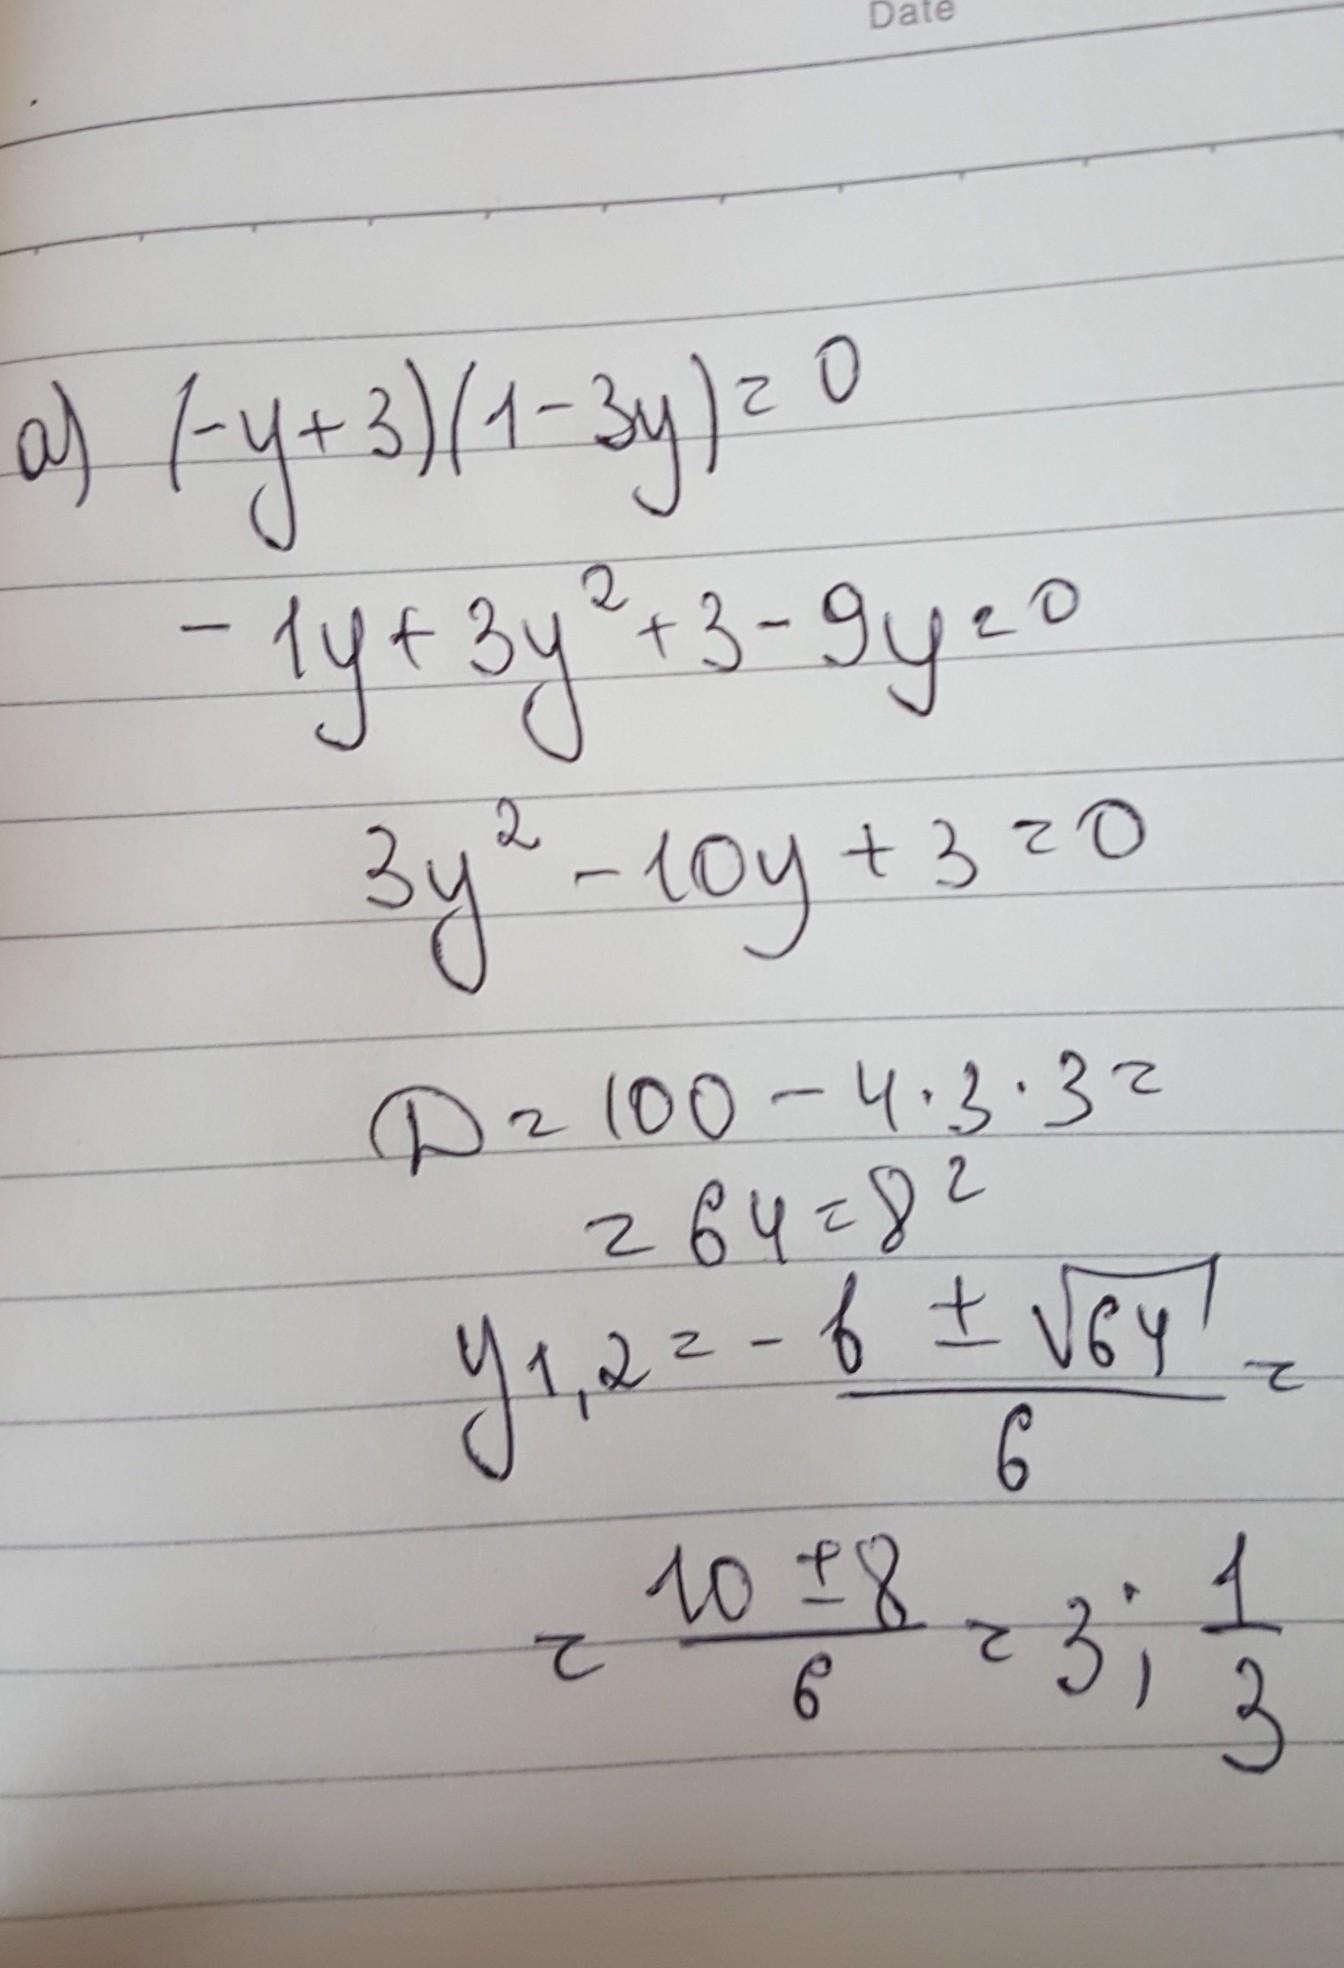 Date
a) (-y+3)(1-3y)=0
-1y+3y²+3-9y=0
3y²-10y+3=0
D=100-4·3·3=
=64=8²
y1,2=-b±√64/6=
=10±8/6=3; 1/3